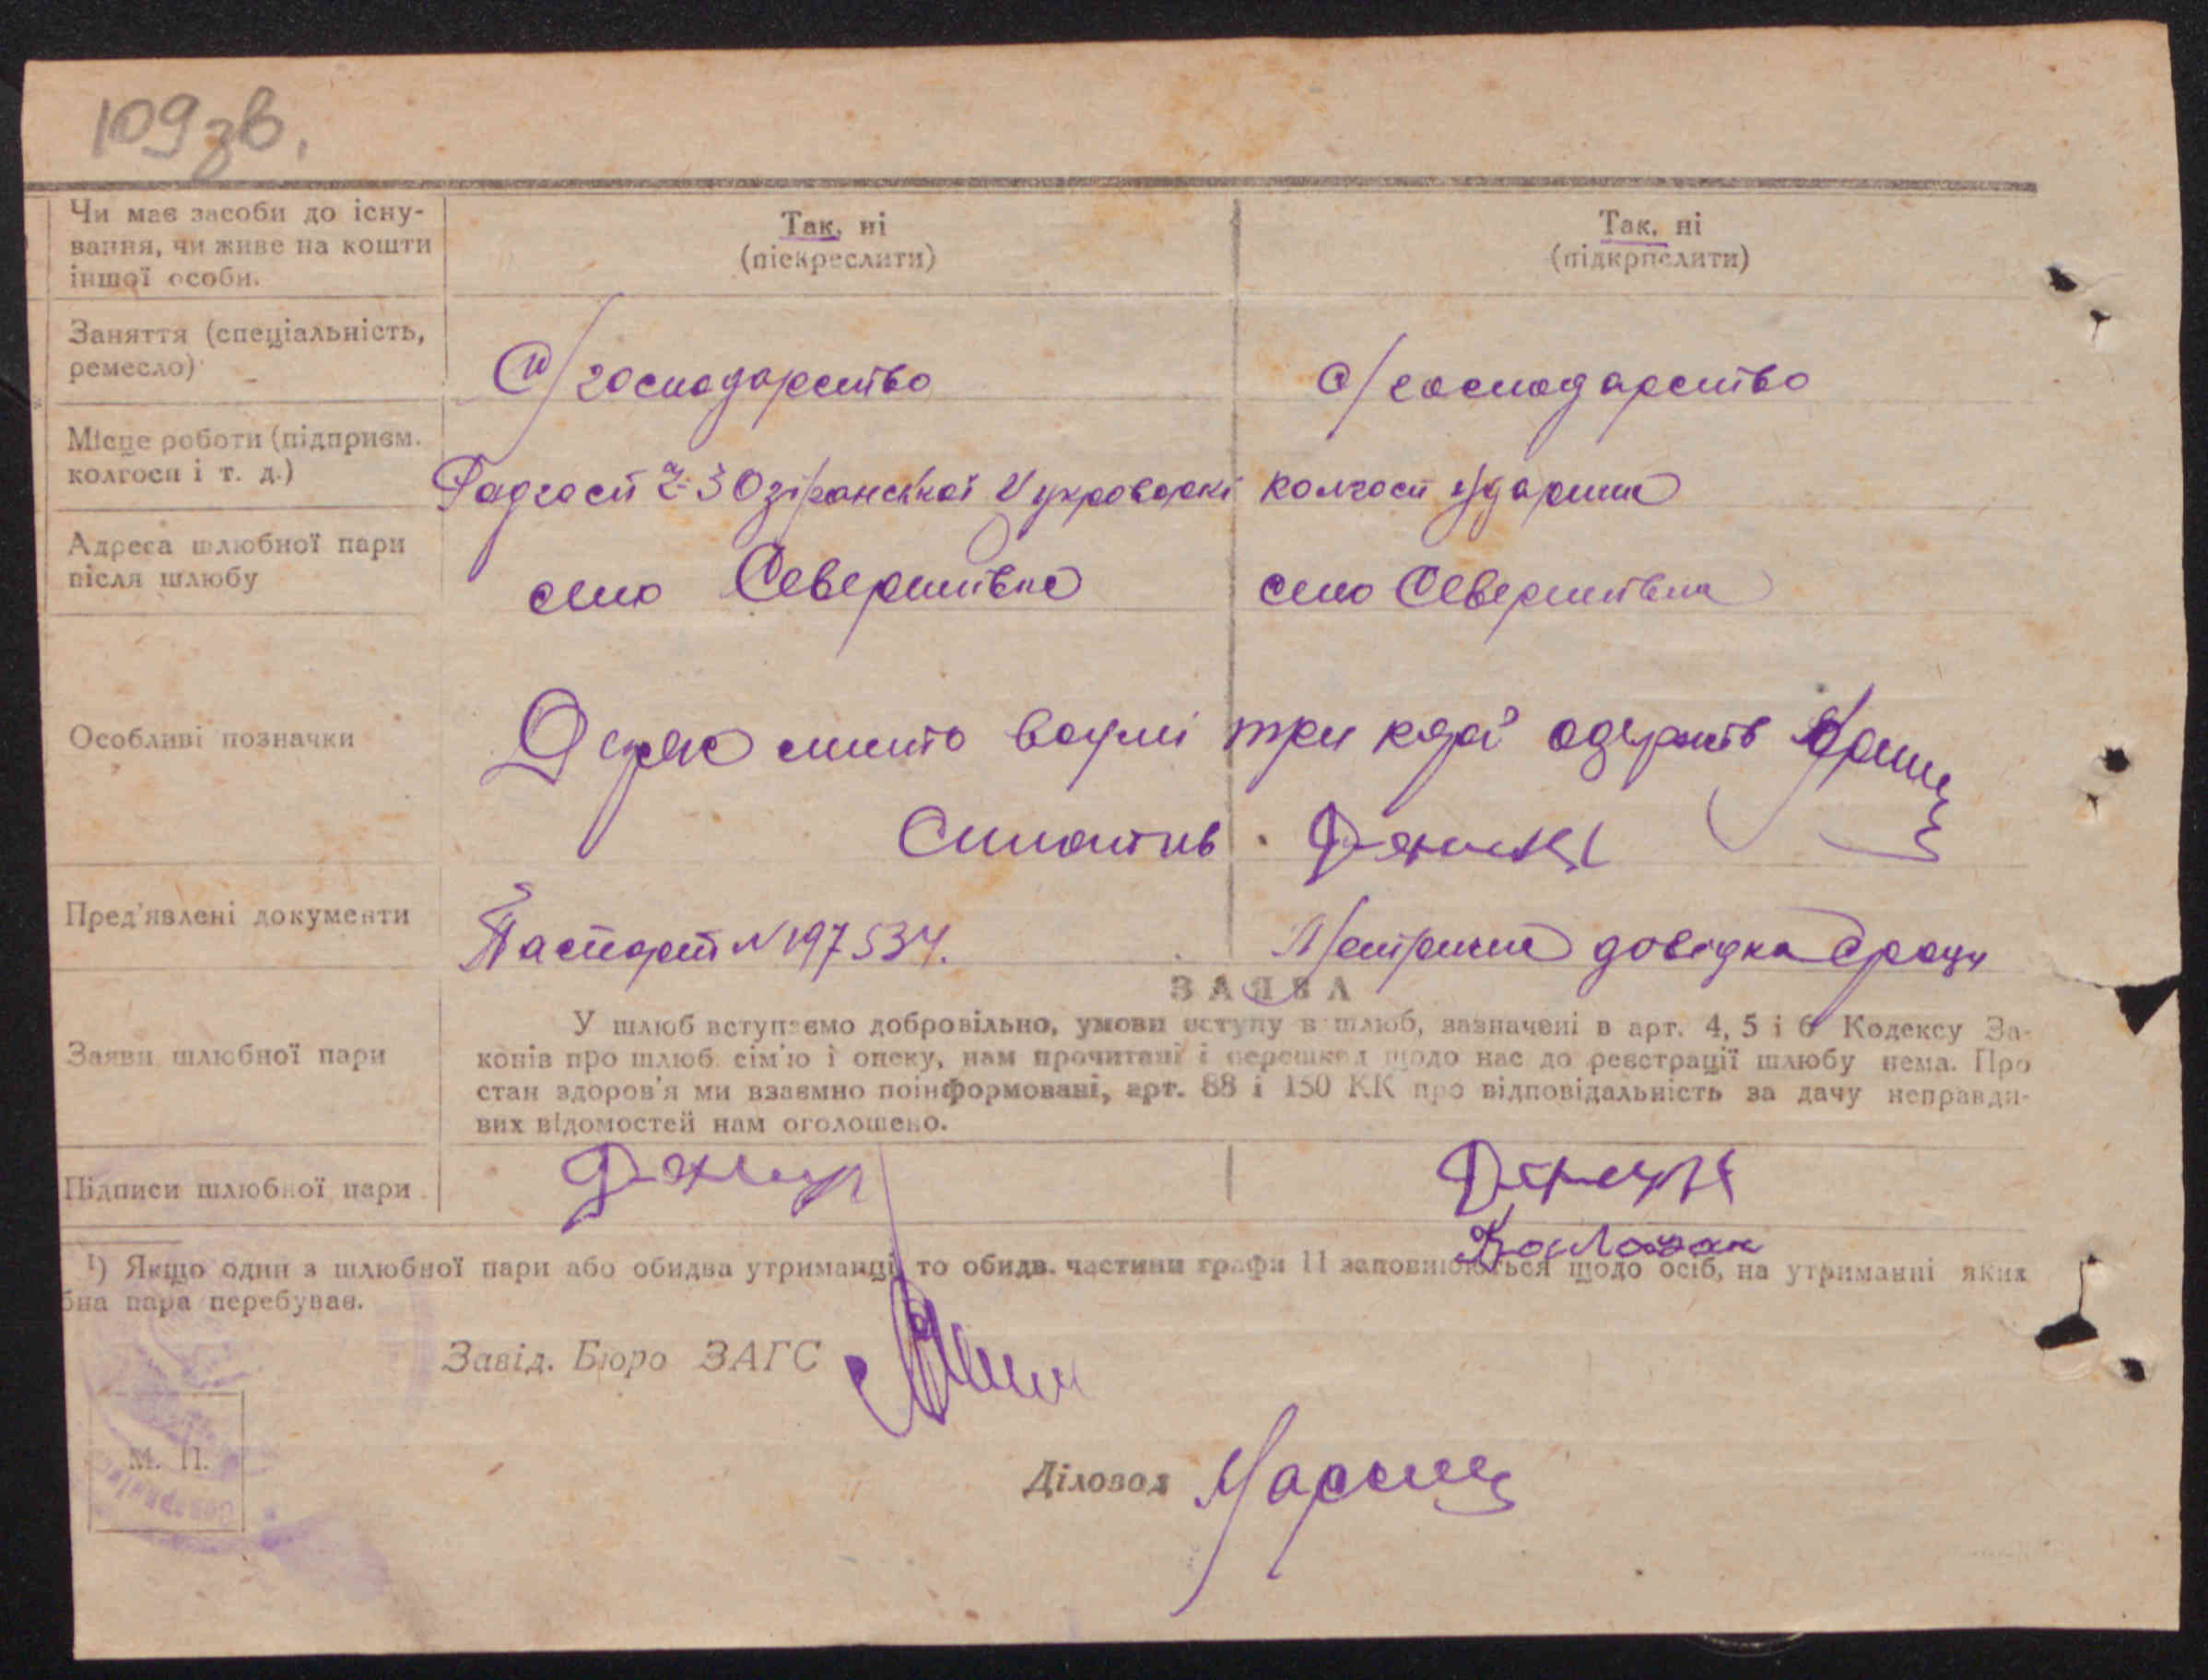 109 зв.
Чи має засоби до існу-
вання, чи живе на кошти
іншої особи.
Так, ні
(піскреслити)
Так, ні
(підкрпслити)
Заняття (спеціальність,
ремесло)
С/господарство
с/господарство
Місце роботи (підприєм.
колгосп і т. д.)
Радгосп
колгосп Ударник
Адреса шлюбної пари
після шлюбу
село Северинівка
село Северинівка
Особливі позначки
три карб одержав
Сплатив
Пред'явлені документи
Паспорт № 197534.
Метрична довідка
ЗАЯВА
Заяви шлюбної пари
У шлюб вступаємо добровільно, умови вступу в шлюб, зазначені в арт. 4, 5 і 6 Кодексу За-
конів про шлюб сім'ю і опеку, нам прочитані і перешкод щодо нас до реєстрації шлюбу нема. Про
стан здоров'я ми взаємно поінформовані, арт. 88 і 150 КК про відповідальність за дачу неправди-
вих відомостей нам оголошено.
Підписи шлюбної пари
¹) Якщо один з шлюбної пари або обидва утриманці, то обидв. частини графи 11 заповнюються щодо осіб, на утриманні яких
бна пара перебуває.
Завід. Бюро ЗАГС
М. П.
Діловод